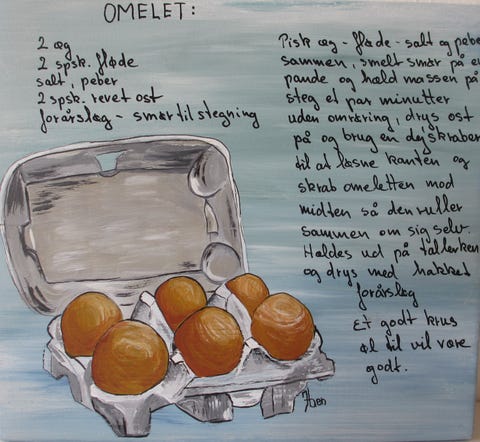 OMELET:
2 æg
2 spsk. fløde
salt, peber
2 spsk. revet ost
forårsløg - smør til stegning
Pisk æg - fløde - salt og pebe
sammen, smelt smør på en
pande og hæld massen på
steg et par minutter
uden omrøring, drys ost
på og brug en dejskraber
til at løsne kanten og
skrab omeletten mod
midten så den ruller
sammen om sig selv.
Hældes ud på tallerken
og drys med hakket
forårsløg
Et godt krus
øl til vil være
godt.